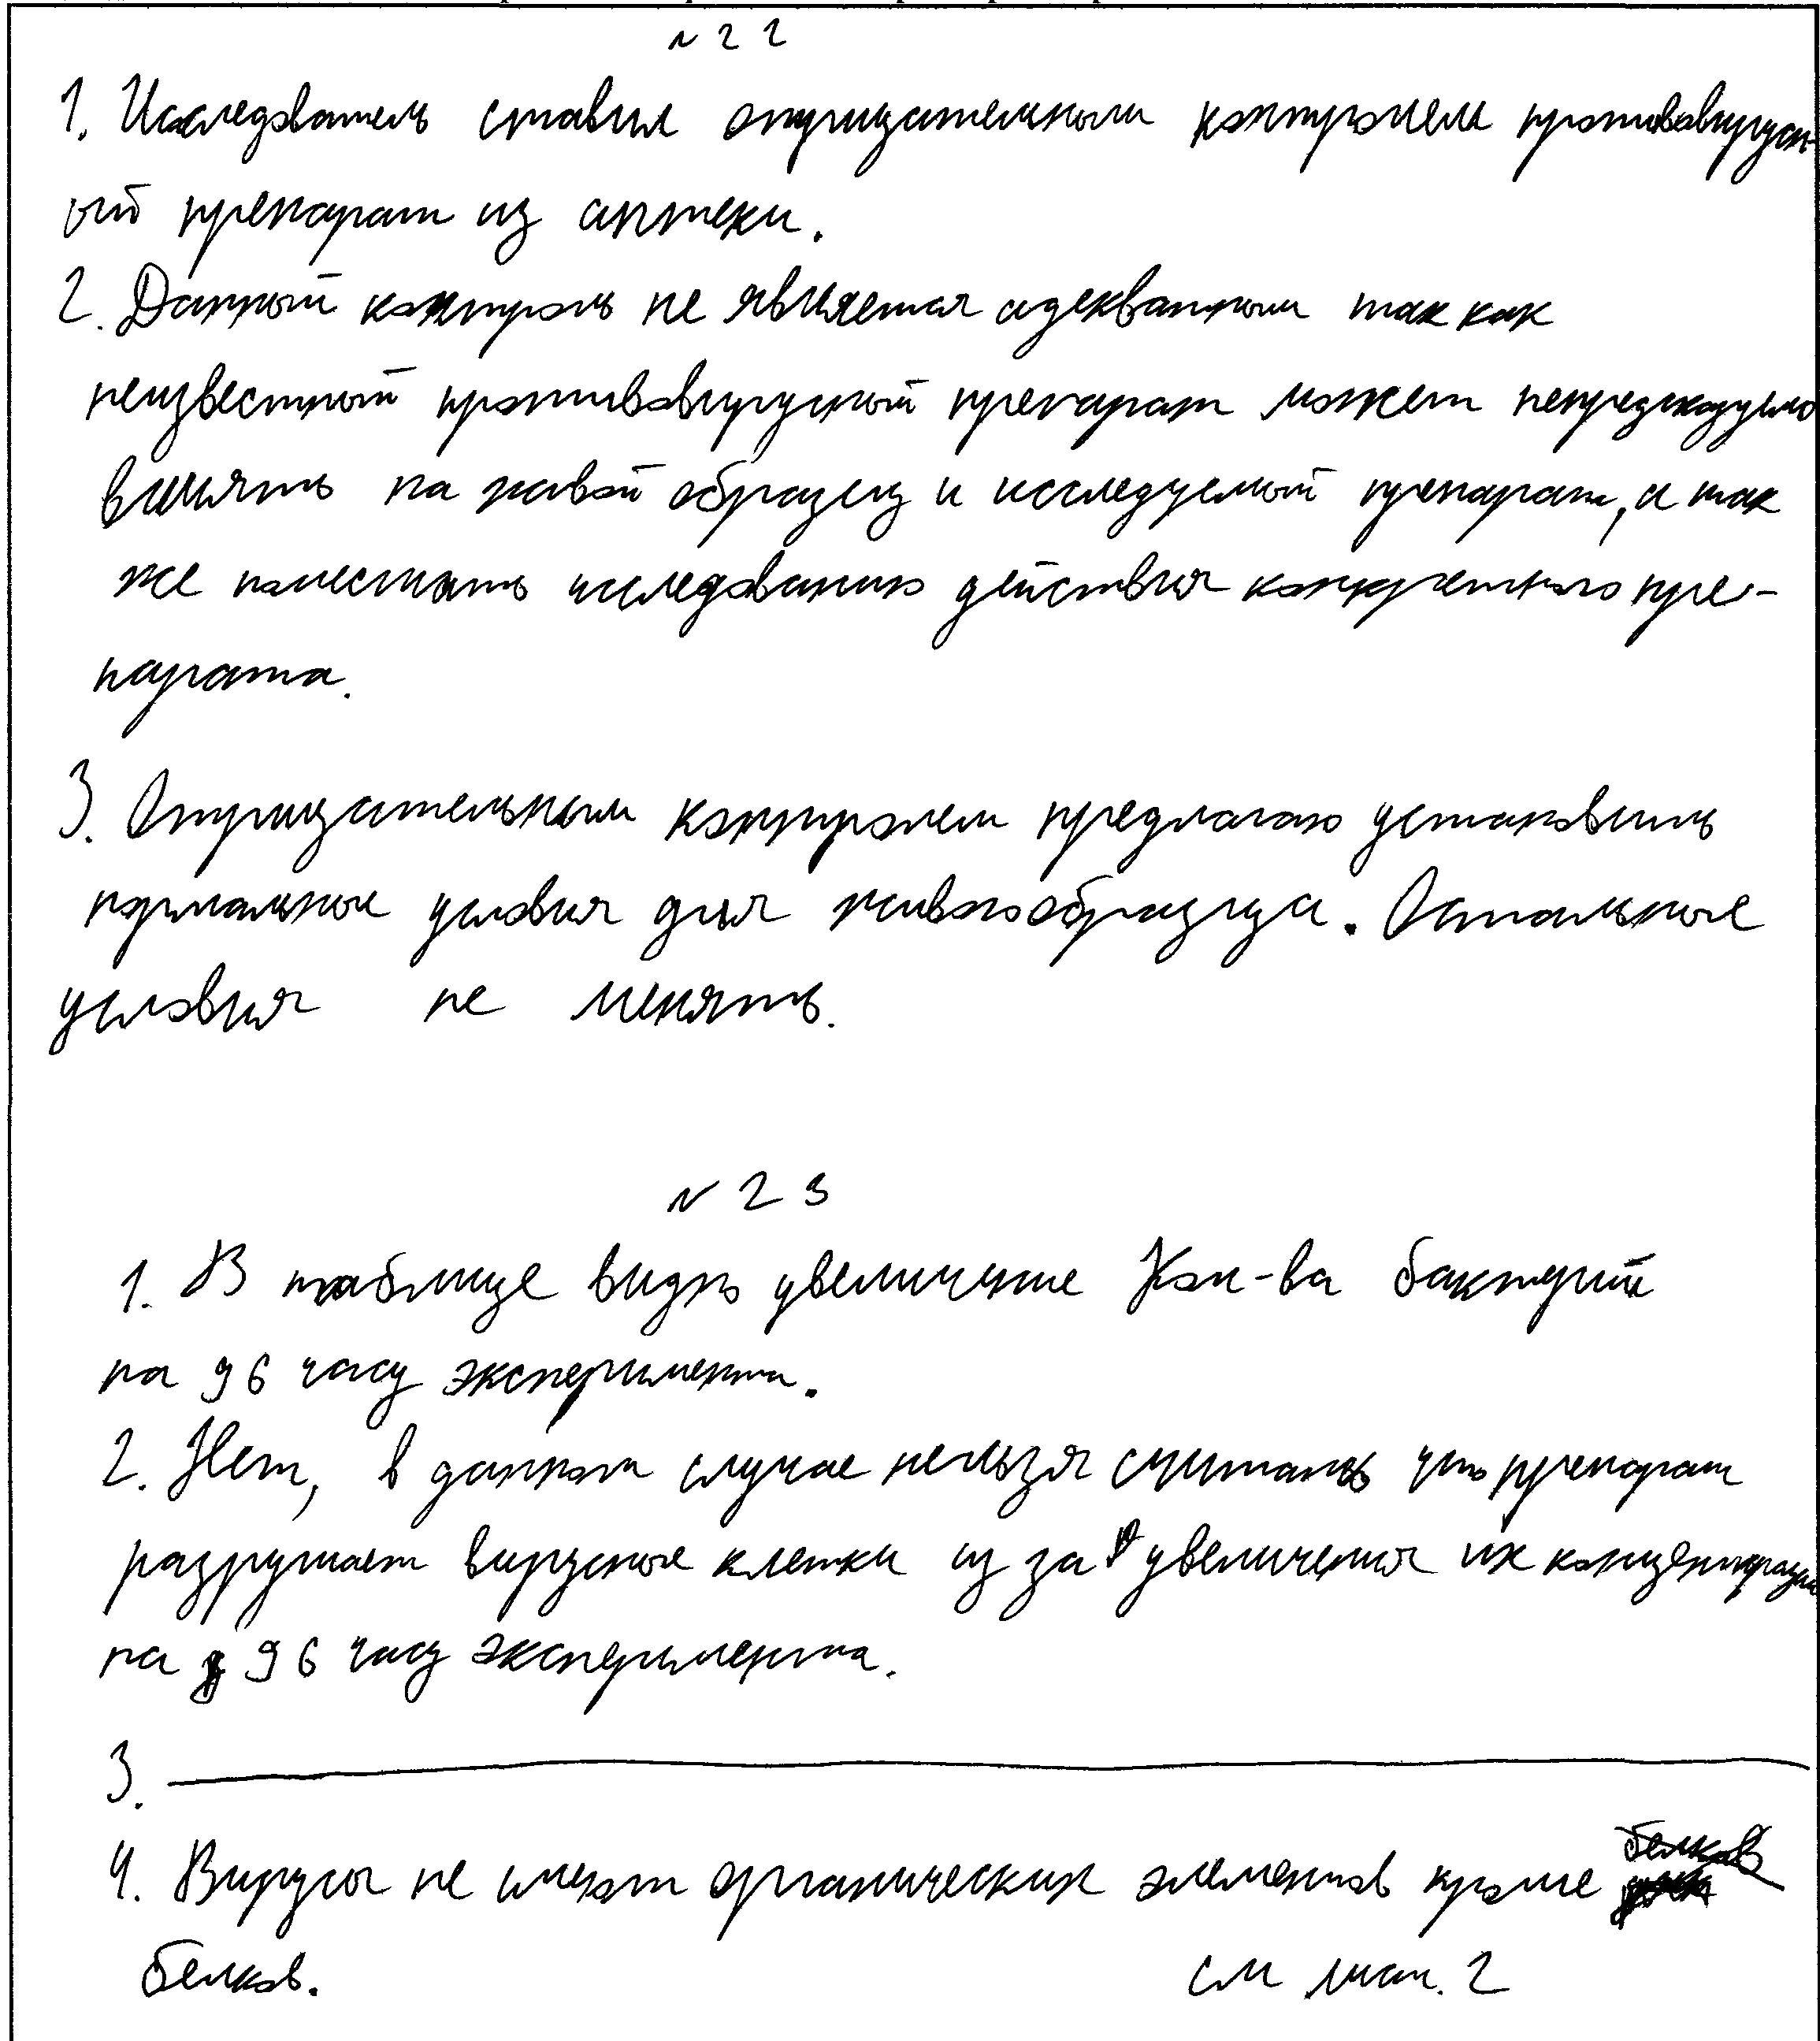 № 22
1. Исследователь ставил отрицательным контролем противовирусн-
ый препарат из аптеки.
2. Данный контроль не является адекватным так как
неизвестный противовирусный препарат может непредсказуемо
влиять на живой образец и исследуемый препарат, а так
же помешать исследованию действия конкретного пре-
парата.
3. Отрицательным контролем предлагаю установить
нормальные условия для живого образца. Остальные
условия не менять.
№ 23
1. В таблице видно увеличение Кол-ва бактерий
на 96 часу эксперимента.
2. Нет, в данном случае нельзя считать что препарат
разрушает вирусные клетки из за увеличения их концентрации
на 96 часу эксперимента.
3.
4. Вирусы не имеют органических элементов кроме
белков.
см лист. 2